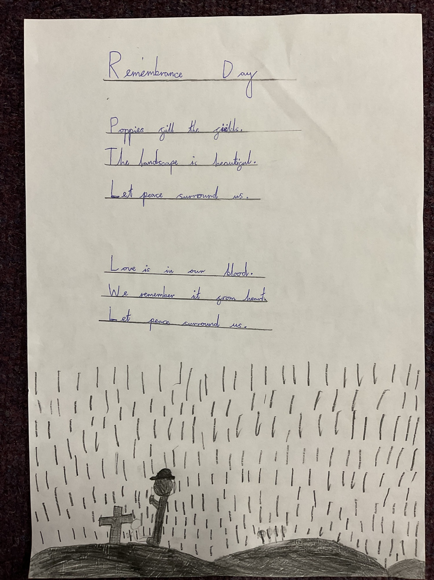 Remembrance Day
Poppies fill the fields.
The landscape is beautiful.
Let peace surround us.
Love is in our blood.
We remember it from hearts
Let peace surround us.